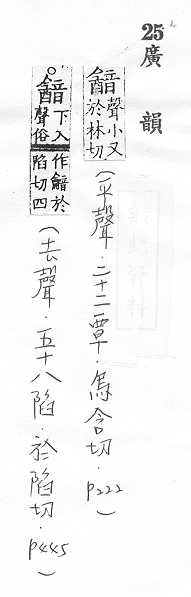 25 廣韻
韽 聲小又於林切 (平聲．二十二覃．烏含切．p222)
○韽 下入聲俗作於陷切四 (去聲．五十八陷．於陷切．p445)